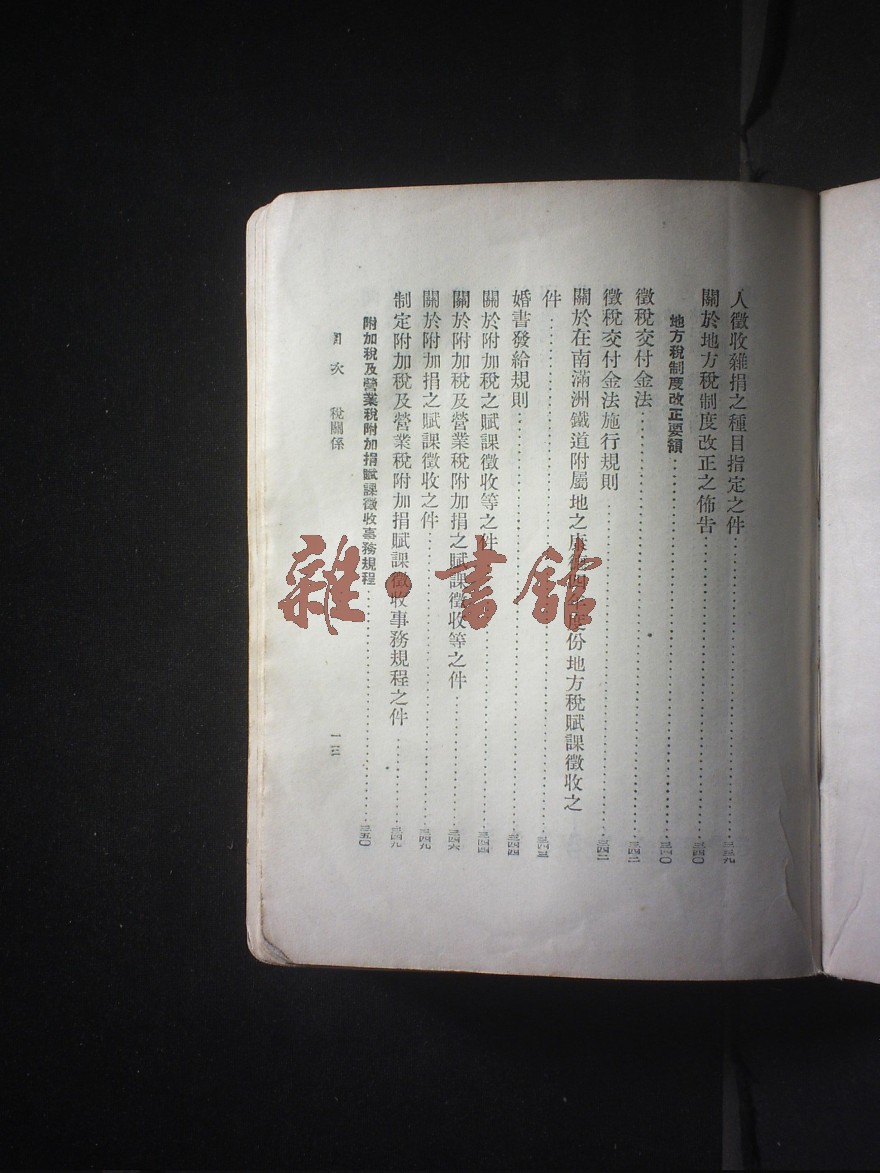 人徵收雜捐之種目指定之件……三三九
關於地方稅制度改正之佈告……三四〇
地方稅制度改正要領……三四〇
徵稅交付金法……三四二
徵稅交付金法施行規則……三四二
關於在南滿洲鐵道附屬地之康德四年度份地方稅賦課徵收之
件……三四三
婚書發給規則……三四四
關於附加稅之賦課徵收等之件……三四四
關於附加稅及營業稅附加捐之賦課徵收等之件……三四六
關於附加捐之賦課徵收之件……三四九
制定附加稅及營業稅附加捐賦課徵收事務規程之件……三四九
附加稅及營業稅附加捐賦課徵收事務規程……三五〇
目次 稅關係 一三
雜·書館